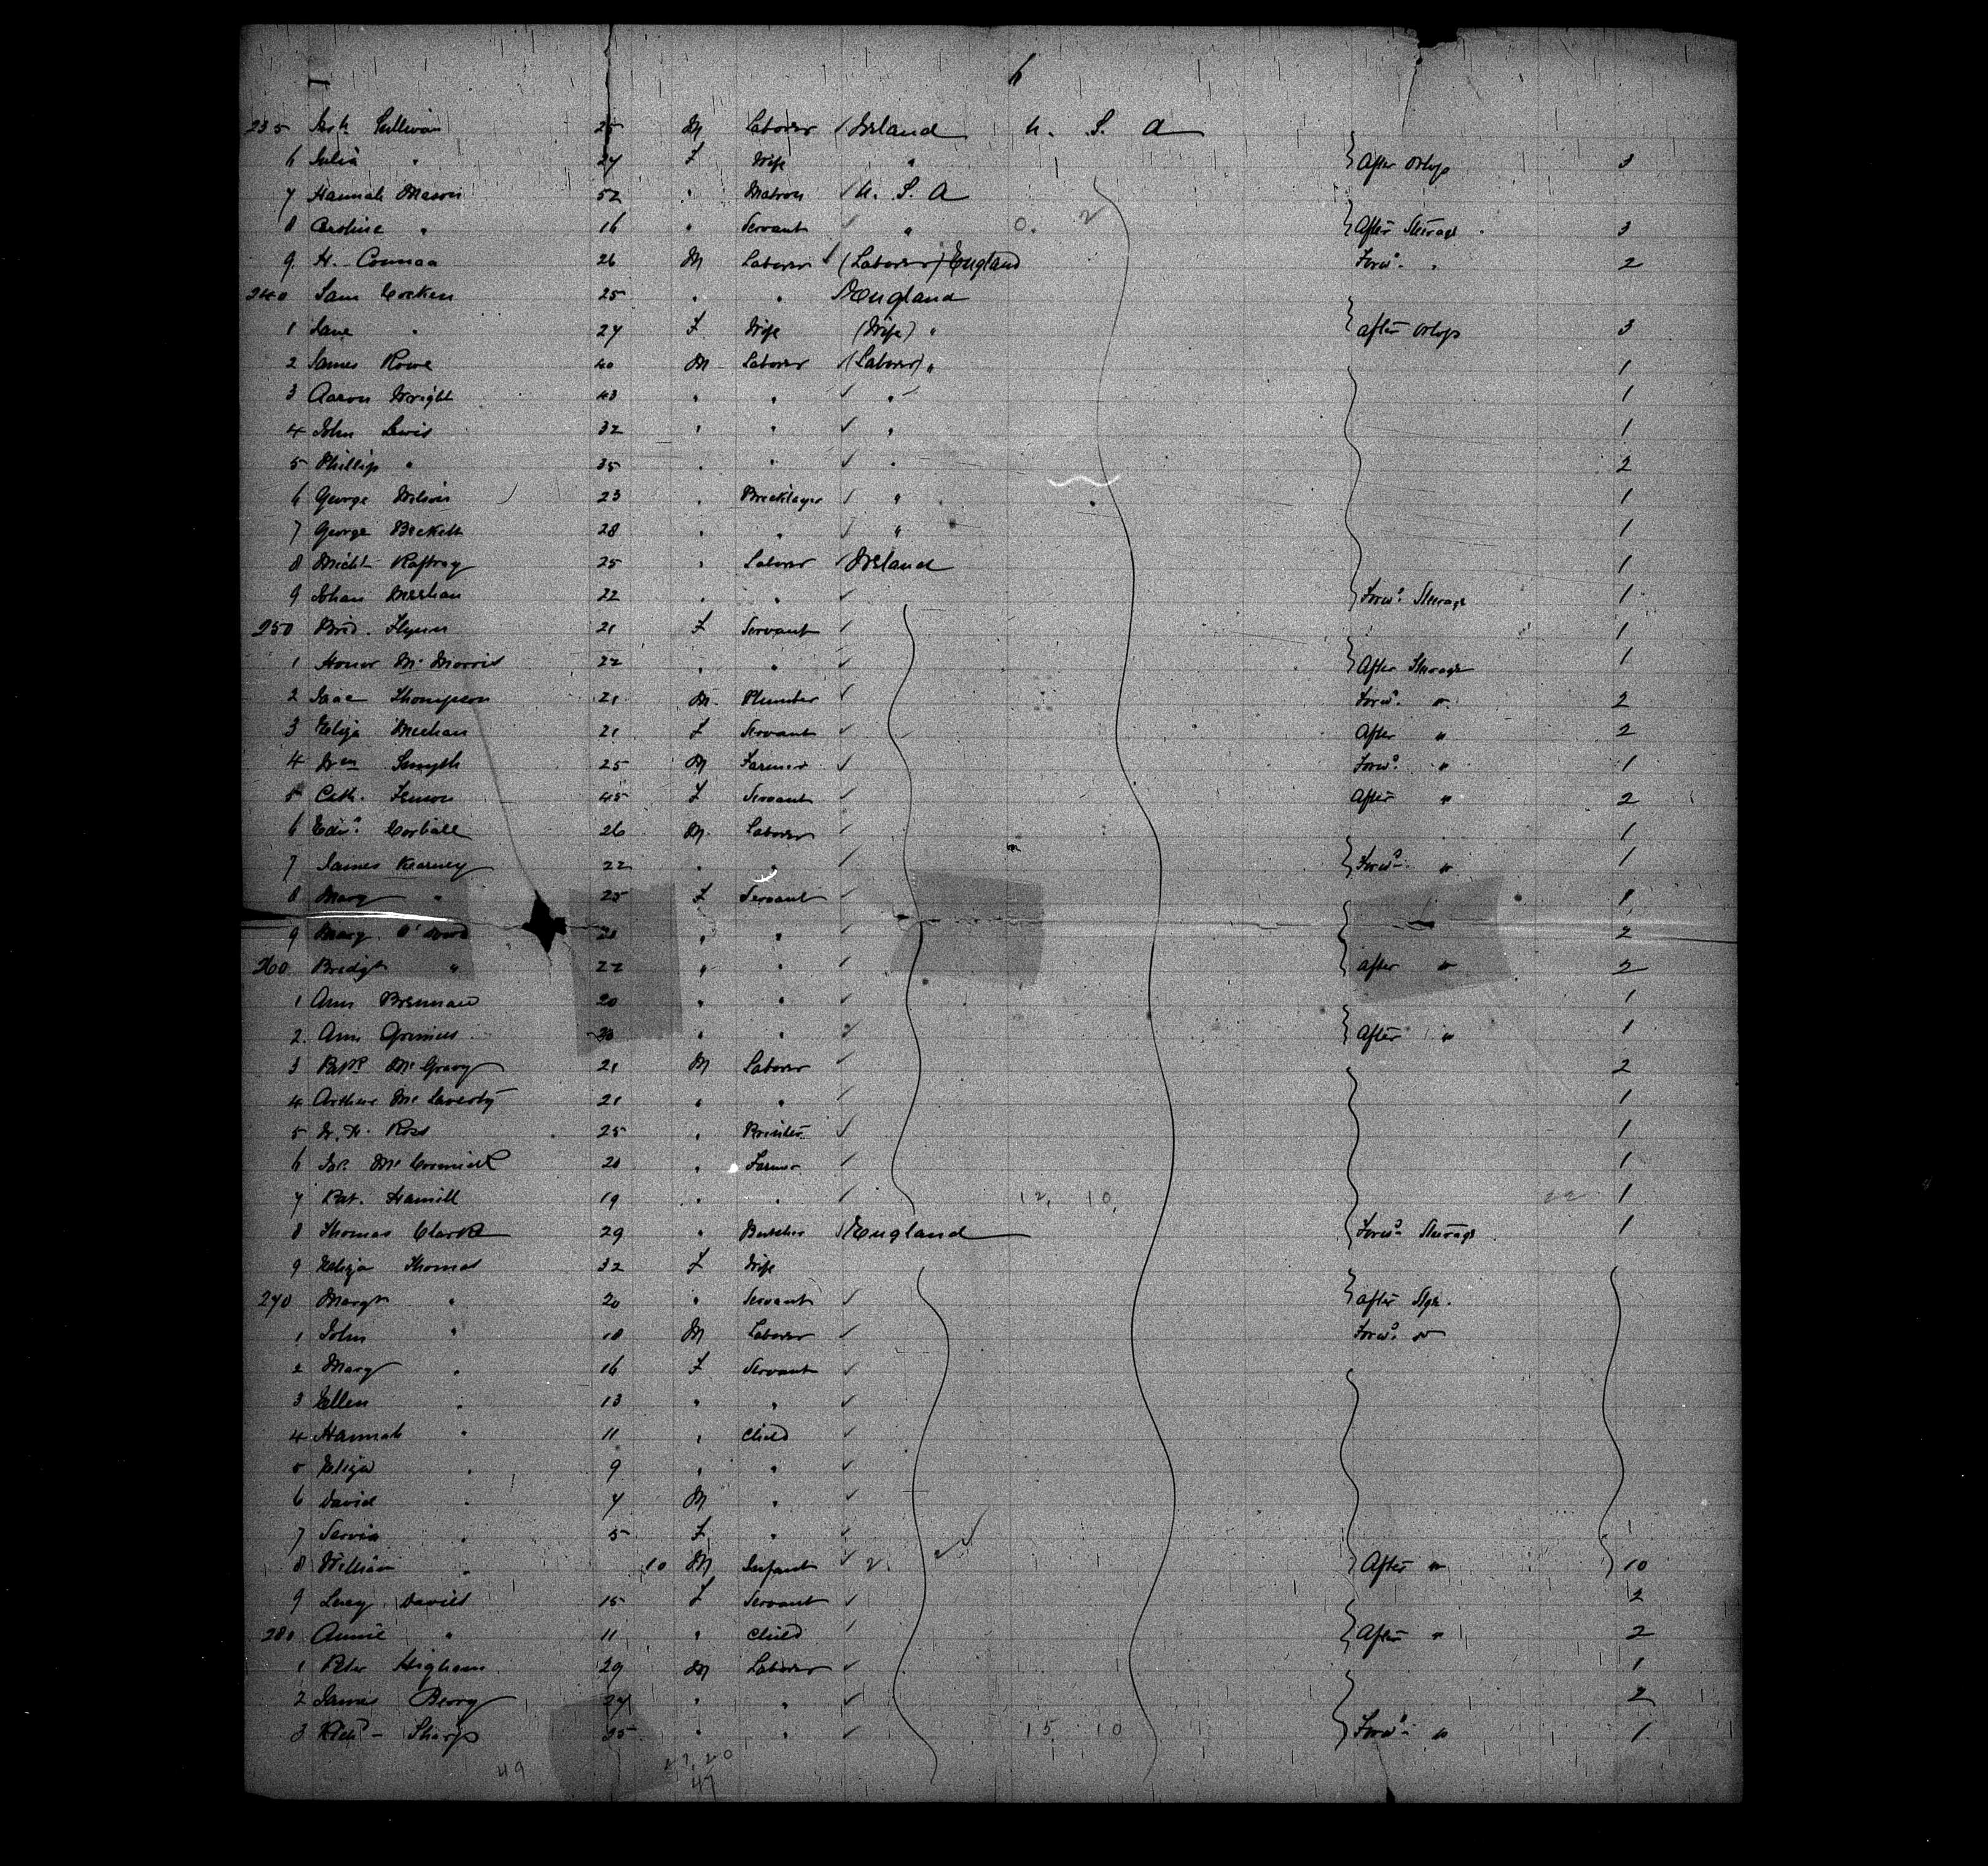 6
235 Sullivan 25 M Laborer Ireland U. S. A
6 Julia " 27 F Wife " After Orlop 3
7 Hannah Mason 52 " Matron U. S. A
8 Caroline " 16 " Servant " After Steerage 3
9 H. 26 M Laborer (Laborer) England Forwd. " 2
240 Sam 25 " " England
1 Jane " 27 F Wife (Wife) " after Orlop 3
2 James Rowe 40 M Laborer (Laborer) " 1
3 Aaron Wright 43 " " " 1
4 John Lewis 32 " " " 1
5 Phillip " 35 " " " 2
6 George 23 " Bricklayer " 1
7 George Beckett 28 " " " 1
8 Michl. Raftray 25 " Laborer Ireland 1
9 Meehan 22 " " Forwd. Steerage 1
250 Brid. Flynn 21 F Servant 1
1 Honor Mc Morris 22 " " After Steerage 1
2 Isaac Thompson 21 M Plumber Forwd. " 2
3 Eliza Meehan 21 F Servant After " 2
4 Wm Smyth 25 M Farmer Forwd. " 1
5 Cath. 45 F Servant After " 2
6 Edwd. 26 M Laborer 1
7 James Kearney 22 " " Forwd. " 1
8 Mary " 25 F Servant 1
9 Mary O' " " 2
260 Bridgt " 22 " " after " 2
1 Ann Brennan 20 " " 1
2 Ann Grimes " " After " 1
3 Patk. 21 M Laborer 2
4 Arthur Mc Laverty 21 " " 1
5 Ross 25 " Printer 1
6 Mc Cormick 20 " Farmer 1
7 Pat. Hamill 19 " " 12, 10, 1
8 Thomas Clark 29 " Butcher England Forwd. Steerage 1
9 Eliza Thomas 32 F Wife
270 Margt " 20 " Servant after Stge.
1 John " 18 M Laborer Forwd. "
2 Mary " 16 F Servant
3 Ellen " 13 " "
4 Hannah " 11 " Child
5 Eliza " 9 " "
6 David " 7 M "
7 " 5 F "
8 William " 10 M Infant 2 After " 10
9 Davies 15 F Servant 2
280 Annie " 11 " Child After " 2
1 Peter Higham 29 M Laborer 1
2 James Berry 27 " " 2
3 Richd. Sharp 35 " " 15 10 Forwd. " 1
49 27, 20
47